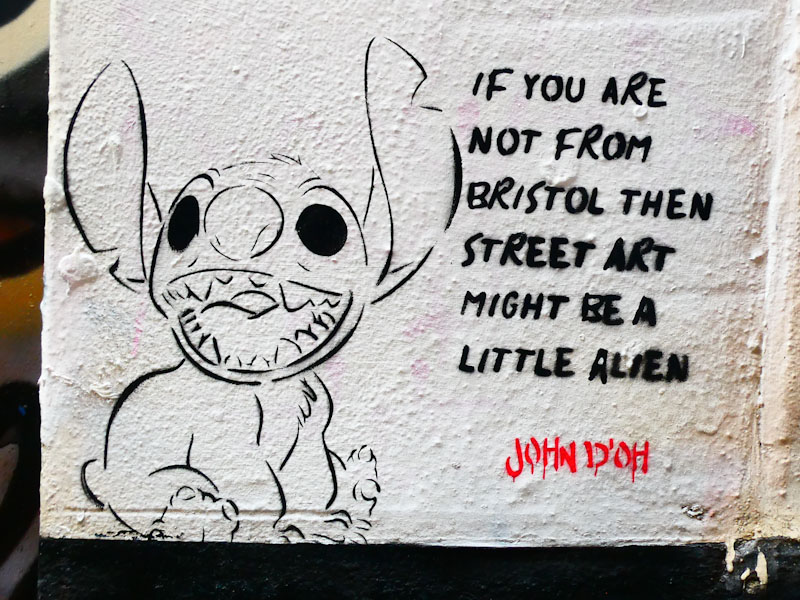 IF YOU ARE
NOT FROM
BRISTOL THEN
STREET ART
MIGHT BE A
LITTLE ALIEN
JOHN D'OH